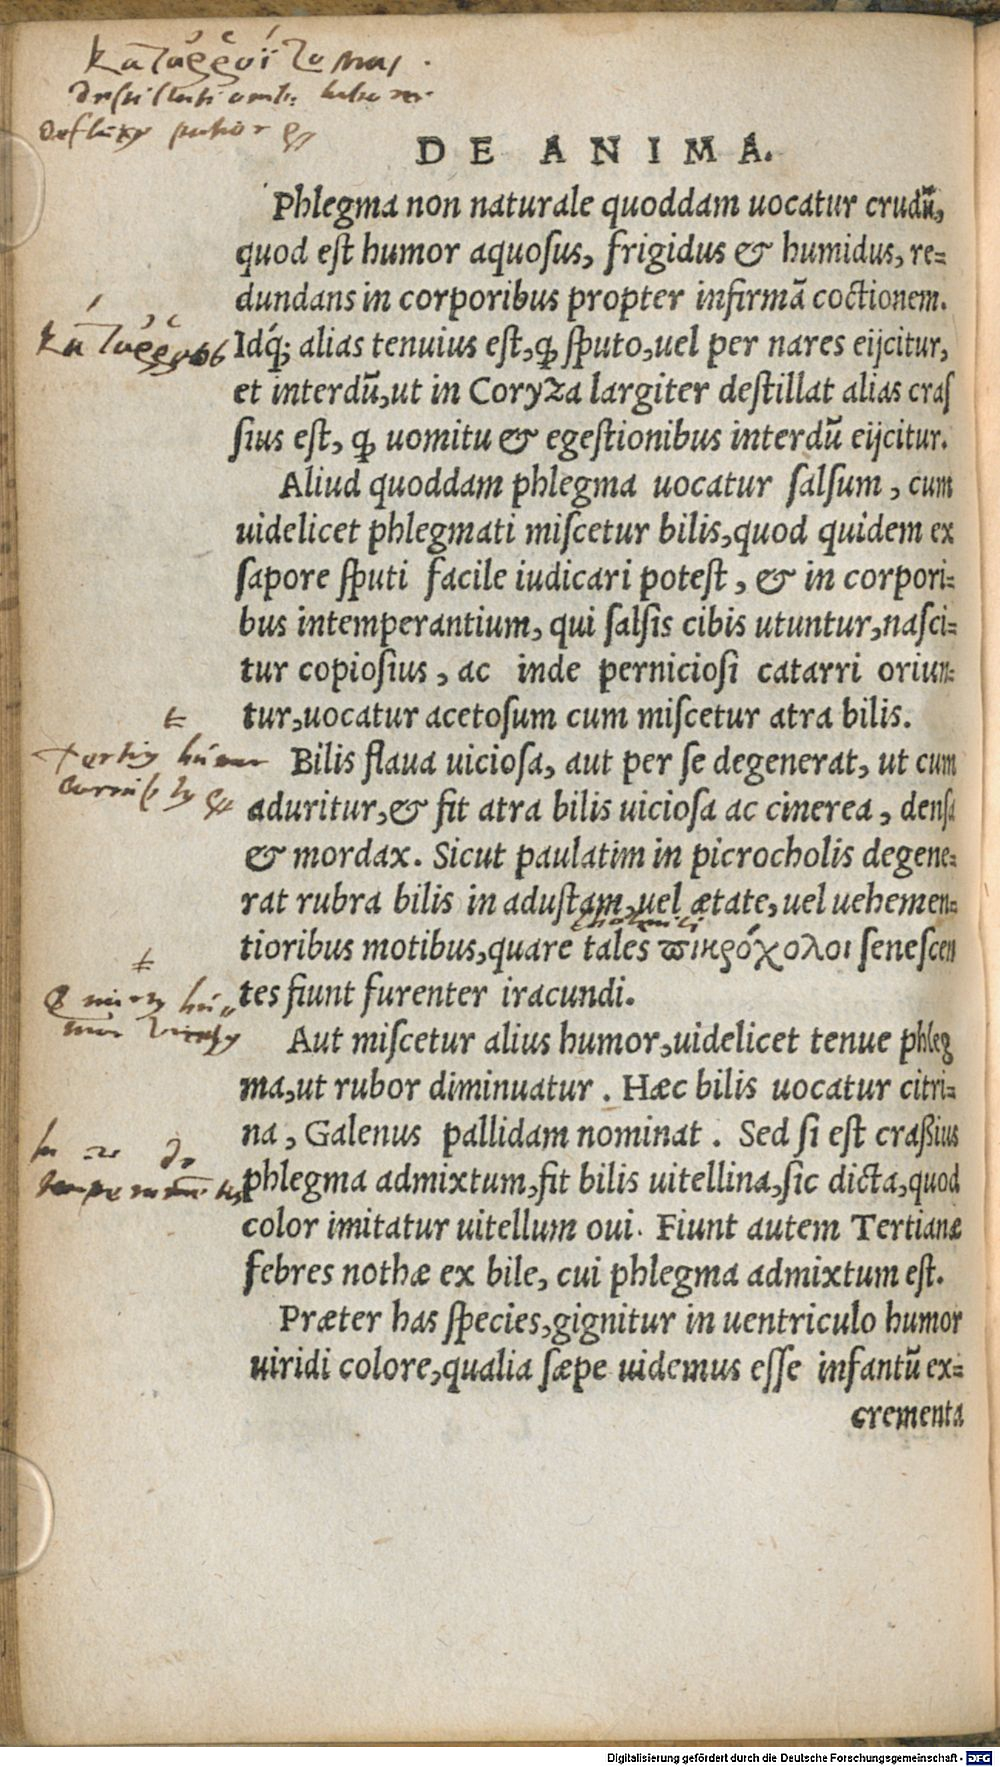 καταῤῥοΐζομαι.
destillationib: laboro
defluxu
DE ANIMA.
Phlegma non naturale quoddam uocatur crudũ,
quod est humor aquosus, frigidus & humidus, re=
dundans in corporibus propter infirmã coctionem.
κατάῤῥους
Idq́; alias tenuius est, ꝙ sputo, uel per nares eijcitur,
et interdũ, ut in Coryza largiter destillat alias cras
sius est, ꝙ uomitu & egestionibus interdũ eijcitur.
Aliud quoddam phlegma uocatur salsum, cum
uidelicet phlegmati miscetur bilis, quod quidem ex
sapore sputi facile iudicari potest, & in corpori=
bus intemperantium, qui salsis cibis utuntur, nasci=
tur copiosius, ac inde perniciosi catarri oriun=
tur, uocatur acetosum cum miscetur atra bilis.
Bilis flaua uiciosa, aut per se degenerat, ut cum
aduritur, & fit atra bilis uiciosa ac cinerea, densa
& mordax. Sicut paulatim in picrocholis degene=
rat rubra bilis in adustam, uel ætate, uel uehemen=
tioribus motibus, quare tales ϖικρόχολοι senescen
tes fiunt furenter iracundi.
Aut miscetur alius humor, uidelicet tenue phleg
ma, ut rubor diminuatur. Hæc bilis uocatur citri=
na, Galenus pallidam nominat. Sed si est craßius
phlegma admixtum, fit bilis uitellina, sic dicta, quod
color imitatur uitellum oui. Fiunt autem Tertianæ
febres nothæ ex bile, cui phlegma admixtum est.
Præter has species, gignitur in uentriculo humor
uiridi colore, qualia sæpe uidemus esse infantũ ex=
crementa
Digitalisierung gefördert durch die Deutsche Forschungsgemeinschaft - DFG